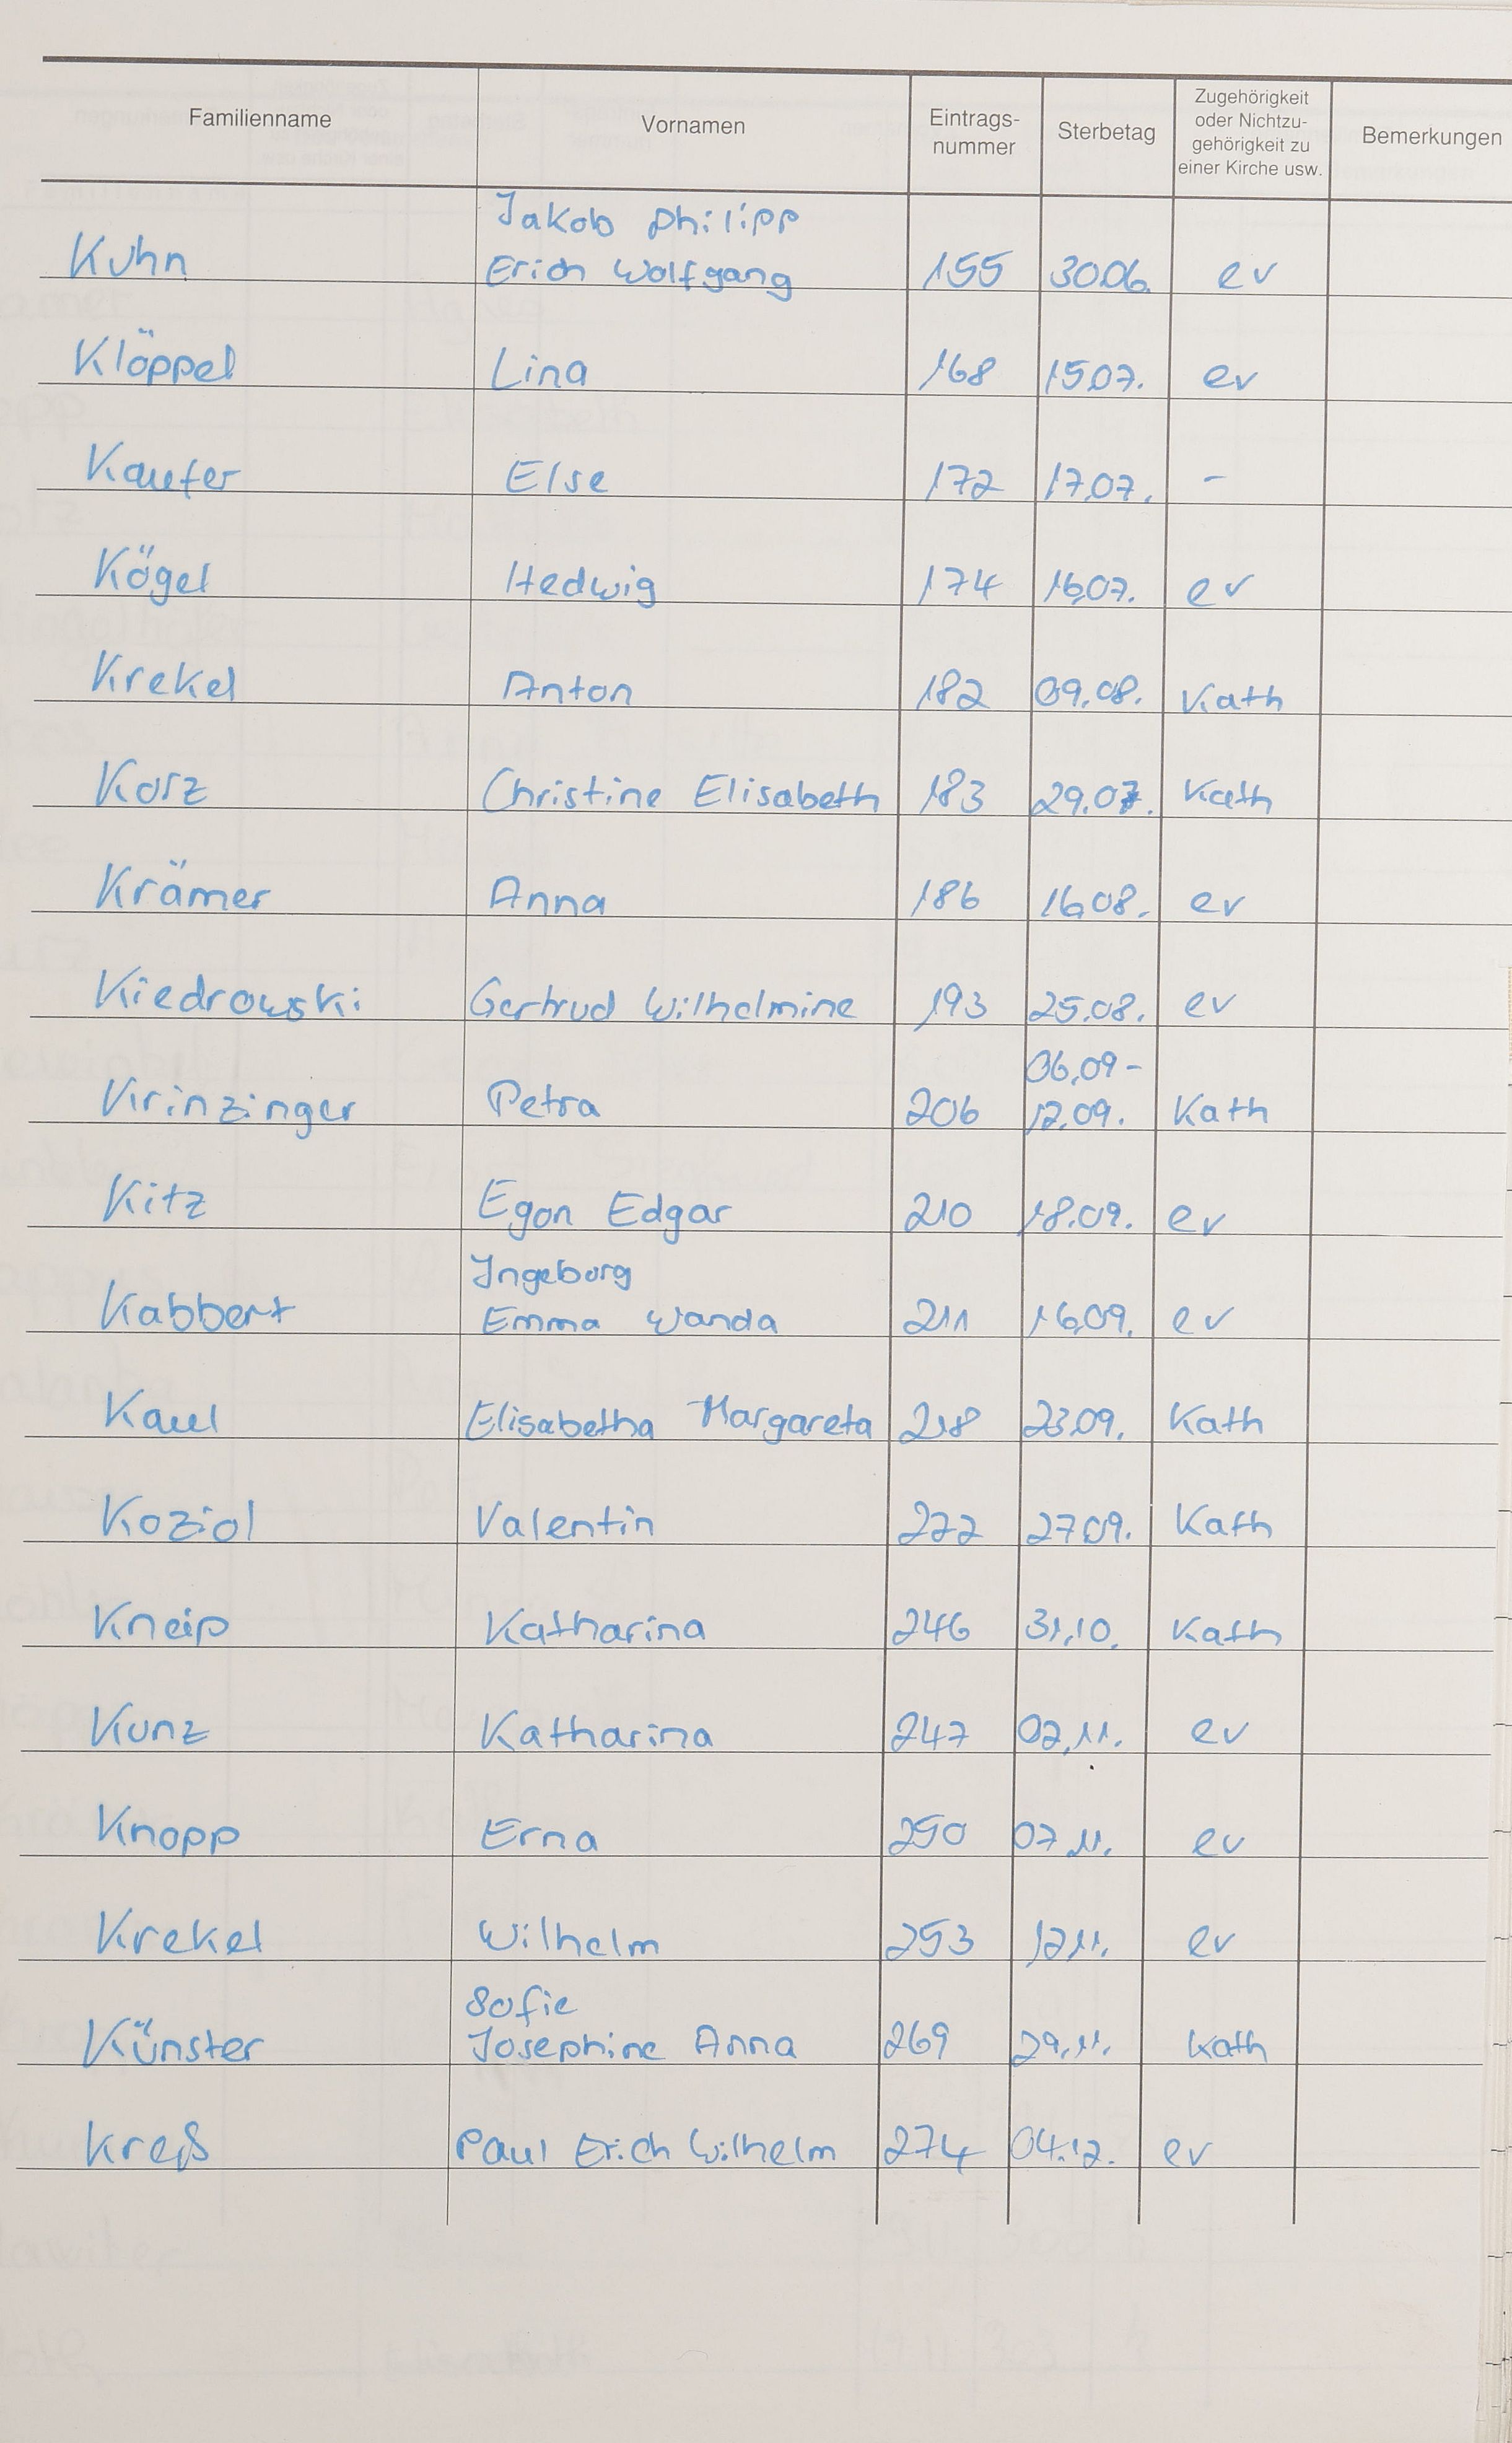 Familienname Vornamen Eintrags-nummer Sterbetag Zugehörigkeit oder Nichtzu-gehörigkeit zu einer Kirche usw. Bemerkungen
Jakob Philipp
Kuhn Erich Wolfgang 155 30.06. ev
Klöppel Lina 168 15.07. ev
Kaufer Else 172 17.07. -
Kögel Hedwig 174 16.07. ev
Krekel Anton 182 09.08. Kath
Korz Christine Elisabeth 183 29.07. Kath
Krämer Anna 186 16.08. ev
Kiedrowski Gertrud Wilhelmine 193 25.08. ev
06.09-
Krinzinger Petra 206 12.09. Kath
Kitz Egon Edgar 210 18.09. ev
Ingeborg
Kabbert Emma Wanda 211 16.09. ev
Kaul Elisabetha Margareta 218 23.09. Kath
Koziol Valentin 222 27.09. Kath
Kneip Katharina 246 31.10. Kath
Kunz Katharina 247 02.11. ev
Knopp Erna 250 07.11. ev
Krekel Wilhelm 253 12.11. ev
Sofie
Künster Josephine Anna 269 29.11. Kath
Kreß Paul Erich Wilhelm 274 04.12. ev